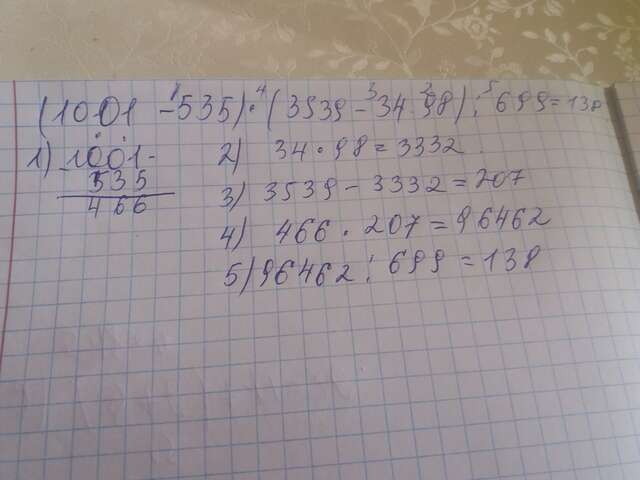 (1001 - 535) · (3539 - 34 · 98) : 699 = 138
1) 1001 -
535
466
2) 34 · 98 = 3332
3) 3539 - 3332 = 207
4) 466 · 207 = 96462
5) 96462 : 699 = 138